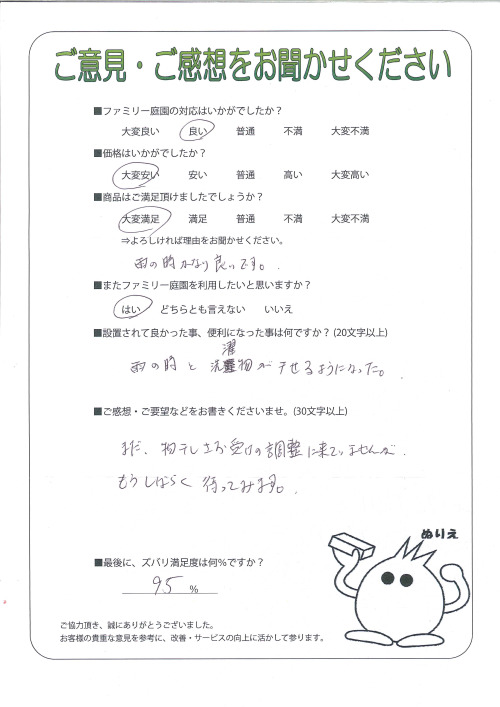 ご意見・ご感想をお聞かせください
■ファミリー庭園の対応はいかがでしたか？
大変良い 良い 普通 不満 大変不満
■価格はいかがでしたか？
大変安い 安い 普通 高い 大変高い
■商品はご満足頂けましたでしょうか？
大変満足 満足 普通 不満 大変不満
⇒よろしければ理由をお聞かせください。
雨の時かなり良いです。
■またファミリー庭園を利用したいと思いますか？
はい どちらとも言えない いいえ
■設置されて良かった事、便利になった事は何ですか？(20文字以上)
雨の時と洗濯物が干せるようになった。
■ご感想・ご要望などをお書きくださいませ。(30文字以上)
まだ、物干しお受けの調整に来ていませんが、
もうしばらく待ってみます。
ぬりえ
■最後に、ズバリ満足度は何％ですか？
95 %
ご協力頂き、誠にありがとうございました。
お客様の貴重な意見を参考に、改善・サービスの向上に活かして参ります。